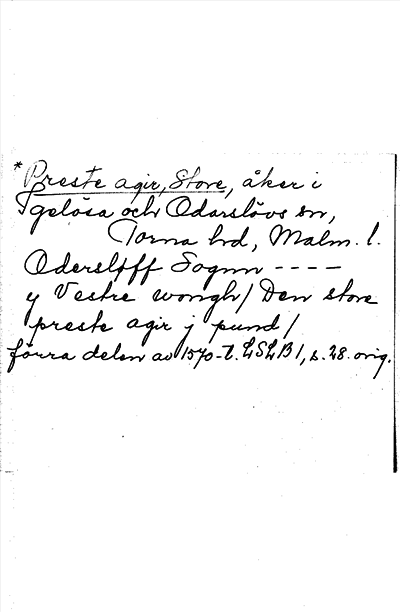 * Preste agir, Store, åker i
Igelösa och Odarslövs sn,
Torna hd, Malm. l.
Odersløff Sognn ----
y Vestre wongh / Den store
preste agir j pund /
förra delen av 1570-t. LSLB 1, s. 28. orig.